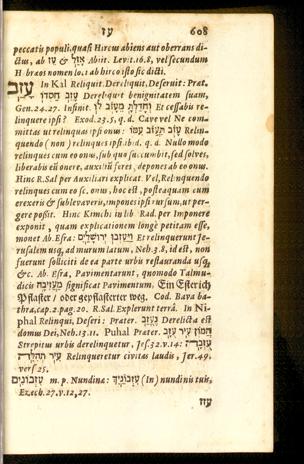 עז 608
peccatis populi, quasi Hircus abiens aut oberrans di-
ctus, ab אָזַל & עֵז Abiit. Lev. 16. 8, vel secundum
Hebraeos nomen loci ab hirco isto sic dicti.
עָזַב In Kal Reliquit. Dereliquit. Deseruit: Praet.
עָזַב חַסְדּוֹ Dereliquit benignitatem suam,
Gen. 24. 27. Infinit. וְחָדַלְתָּ מֵעֲזֹב לוֹ Et cessabis re-
linquere ipsi? Exod. 23. 5, q. d. Cave vel Ne com-
mittas ut relinquas ipsi onus: עָזֹב תַּעֲזֹב עִמּוֹ Relin-
quendo (non) relinques ipsi ibid. q. d. Nullo modo
relinques cum eo onus, sub quo succumbit, sed solves,
liberabis eū onere, auxilii seres, depones ab eo onus.
Hinc R. Sal per Auxiliari explicat. Vel, Relinquendo
relinques cum eo sc. onus, hoc est, postea quam cum
erexeris & sublevaveris, impones ipsi rursum, ut per-
gere possit. Hinc Kimchi in lib Rad. per Imponere
exponit, quam explicationem longè petitam esse,
monet Ab. Esra: וַיַּעַזְבוּ יְרוּשָׁלַיִם Et relinquerunt Je-
rusalem usq, ad murum latum, Neh. 3. 8, id est, non
fuerunt solliciti de ea parte urbis restauranda usq,
&c. Ab. Esra, Pavimentarunt, quomodo Talmu-
dicis מַעֲזִיבָה significat Pavimentum. Ein Esterich
Pflaster / oder gepflasterter weg. Cod. Bava ba-
thra, cap. 2. pag. 20. R. Sal. Explerunt terrâ. In Ni-
phal Relinqui, Deseri: Praeter. נֶעֱזַב Derelicta est
domus Dei, Neh. 13. 11. Puhal Praeter. הֲמוֹן עִיר עֻזָּב
Strepitus urbis derelinquetur, Jes. 32. v. 14:
עֻזְּבָה עִיר תְּהִלָּה Relinqueretur civitas laudis, Jer. 49.
vers 25.
עִזְבוֹנִים m. p. Nundinae: עִזְבוֹנָיִךְ (In) nundinis tuis,
Ezech. 27. v. 12, 27.
עזז